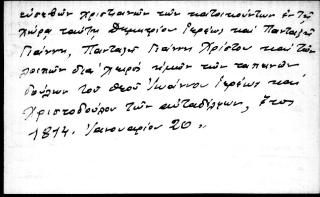 εὐσεβῶν χριστιανῶν τῶν κατοικούντων ἐν τῇ
χώρᾳ ταύτῃ Δημητρίου ἱερέως καὶ Πανταζῆ
Γιάννη, Πανταζῆ Γιάννη Χρίστου καὶ τῶν
λοιπῶν διὰ χειρὸς ἡμῶν τῶν ταπεινῶν
δούλων τοῦ Θεοῦ Ἰωάννου ἱερέως καὶ
Χριστοδούλου τῶν αὐταδέλφων, ἔτος
1814. Ἰαννουαρίου 20.